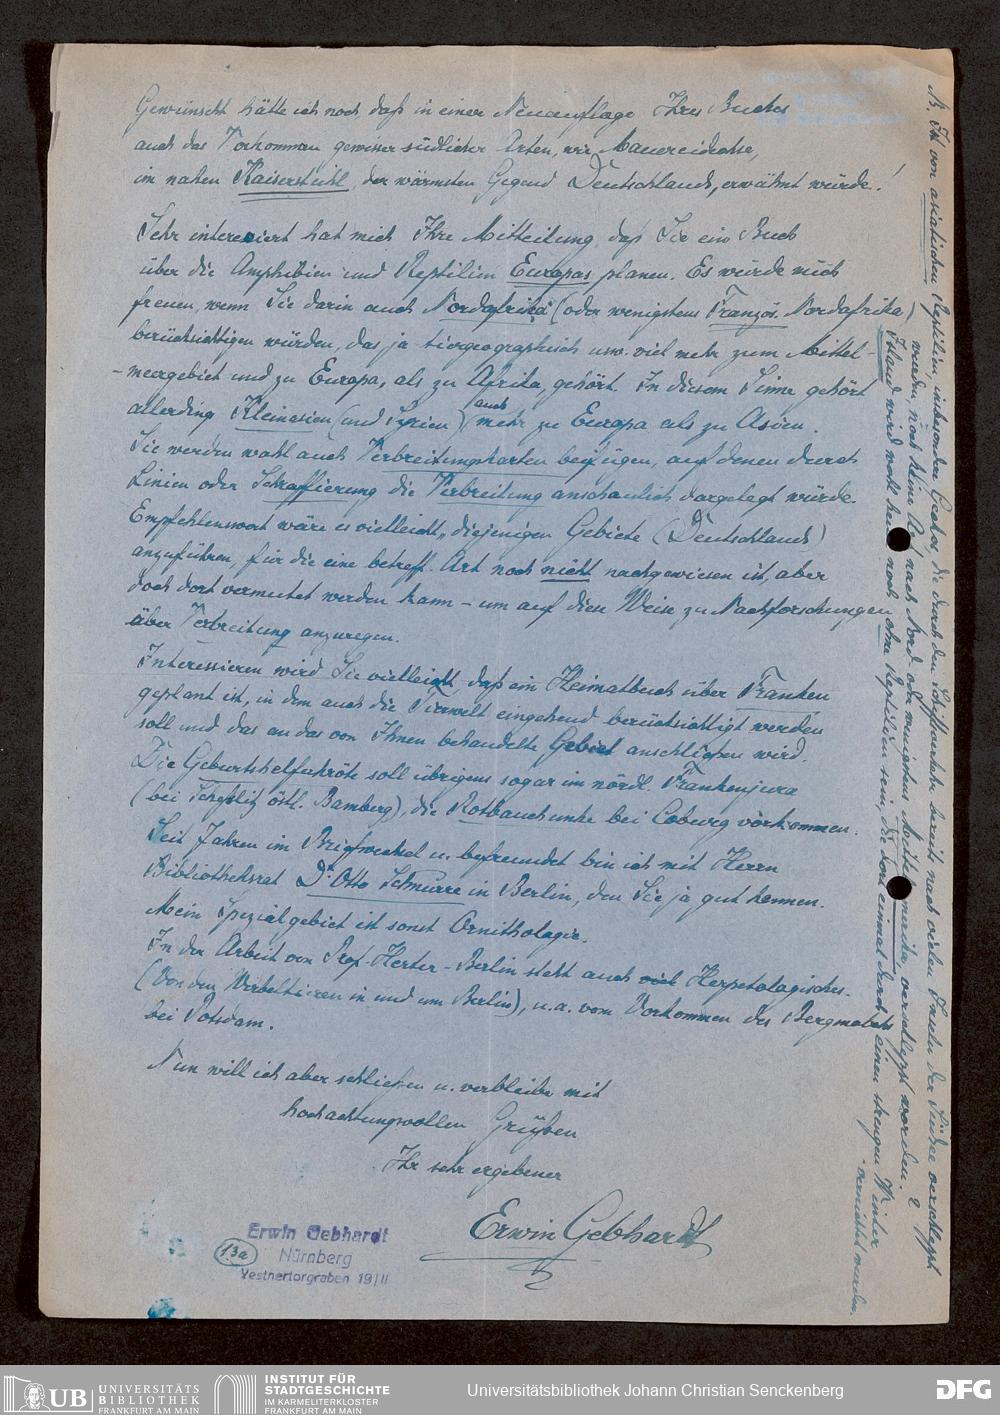 Gewünscht hätte ich noch, daß in einer Neuauflage Ihres Buches
auch das Vorkommen gewisser südlicher Arten, wie Mauereidechse,
im nahen Kaiserstuhl, der wärmsten Gegend Deutschlands, erwähnt würde!
Sehr interessiert hat mich Ihre Mitteilung, daß Sie ein Buch
über die Amphibien und Reptilien Europas planen. Es würde mich
freuen, wenn Sie darin auch Nordafrika (oder wenigstens Französ. Nordafrika)
berücksichtigen würden, das ja tiergeographisch usw. viel mehr zum Mittel-
-meergebiet und zu Europa, als zu Afrika, gehört. In diesem Sinne gehört
allerdings Kleinasien (und Syrien) auch mehr zu Europa als zu Asien.
Sie werden wohl auch Verbreitungskarten beifügen, auf denen durch
Linien oder Schraffierung die Verbreitung anschaulich dargelegt würde.
Empfehlenswert wäre es vielleicht, diejenigen Gebiete (Deutschlands)
anzuführen, für die eine betreff. Art noch nicht nachgewiesen ist, aber
doch dort vermutet werden kann - um auf diese Weise zu Nachforschungen
über Verbreitung anzuregen.
Interessieren wird Sie vielleicht, daß ein Heimatbuch über Franken
geplant ist, in dem auch die Tierwelt eingehend berücksichtigt werden
soll und das an das von Ihnen behandelte Gebiet anschließen wird.
Die Geburtshelferkröte soll übrigens sogar im nördl. Frankenjura
(bei Scheßlitz östl. Bamberg), die Rotbauchunke bei Coburg vorkommen.
Seit Jahren im Briefwechsel u. befreundet bin ich mit Herrn
Bibliotheksrat Dr Otto Schnurre in Berlin, den Sie ja gut kennen.
Mein Spezialgebiet ist sonst Ornithologie.
In der Arbeit von Prof. Herter-Berlin steht auch viel Herpetologisches.
(Von den Wirbeltieren in und um Berlin), u.a. vom Vorkommen des Bergmolchs
bei Potsdam.
Nun will ich aber schließen u. verbleibe mit
hochachtungsvollen Grüßen
Ihr sehr ergebener
Erwin Gebhardt
Erwin Gebhardt
13a Nürnberg
Vestnertorgraben 19/II
N. Ist von asiatischen Reptilien, insbesondere Geckos, die durch den Schiffsverkehr bereits nach vielen Inseln der Südsee verschleppt
wurden, noch keine Art nach Nord- oder wenigstens Mittelamerika verschleppt worden?
Irland wird wohl heute noch ohne Reptilien sein, die dort einmal durch einen strengen Winter
vernichtet wurden.
UB UNIVERSITÄTS
BIBLIOTHEK
FRANKFURT AM MAIN
INSTITUT FÜR
STADTGESCHICHTE
IM KARMELITERKLOSTER
FRANKFURT AM MAIN
Universitätsbibliothek Johann Christian Senckenberg
DFG